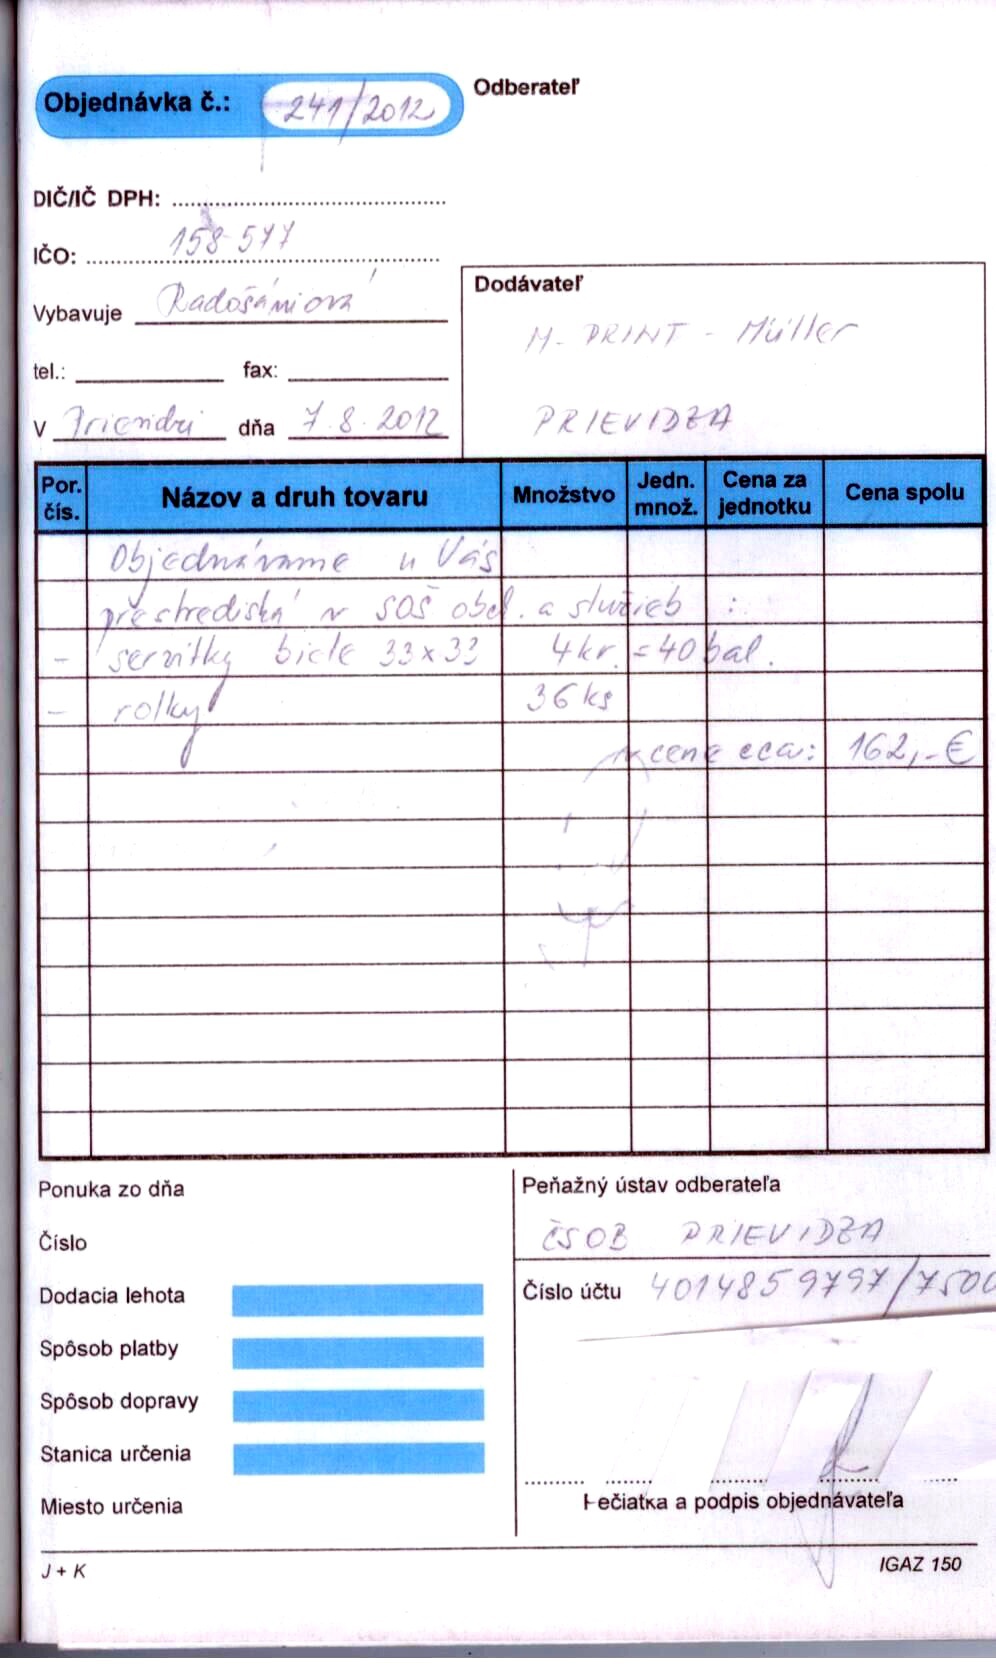 Objednávka č.: 241/2012
Odberateľ
DIČ/IČ DPH:
IČO: 158 577
Vybavuje Radošániová
tel.: fax:
V Prievidzi dňa 7.8.2012
Dodávateľ
M-PRINT - Müller
PRIEVIDZA
Por. čís. Názov a druh tovaru Množstvo Jedn. množ. Cena za jednotku Cena spolu
Objednávame u Vás
prestrediská v SOŠ obch. a služieb :
- servítky biele 33x33 4 kr. = 40 bal.
- rolky 36 ks
cena cca: 162,- €
Ponuka zo dňa
Číslo
Dodacia lehota
Spôsob platby
Spôsob dopravy
Stanica určenia
Miesto určenia
Peňažný ústav odberateľa
ČSOB PRIEVIDZA
Číslo účtu 4014859797/7500
Pečiatka a podpis objednávateľa
J + K
IGAZ 150